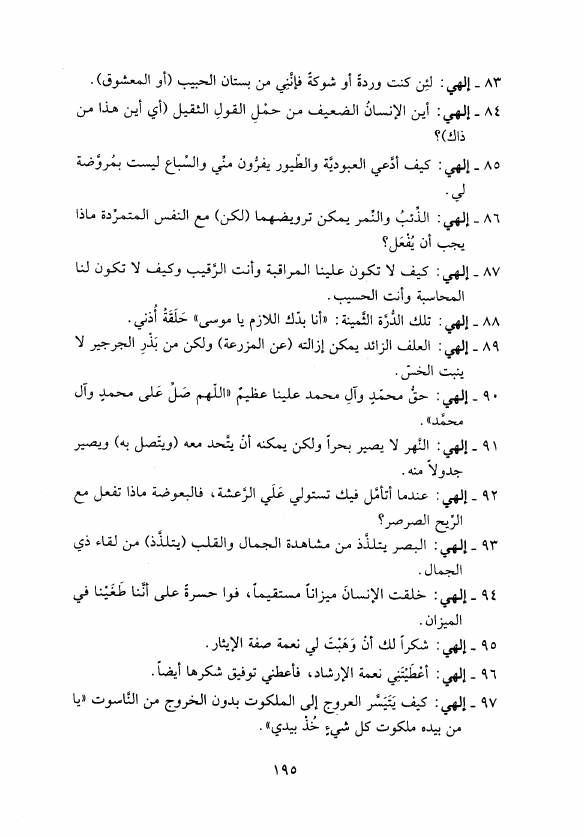 ٨٣ ـ إلهي: لئِن كنت وردةً أو شوكةً فإنَّنِي من بستان الحبيب (أو المعشوق).
٨٤ ـ إلهي: أين الإنسانُ الضعيف من حمْلِ القولِ الثقيل (أي أين هذا من
ذاك)؟
٨٥ ـ إلهي: كيف أدَّعي العبوديَّة والطّيور يفرُّون منّي والسِّباع ليست بمُروَّضة
لي.
٨٦ ـ إلهي: الذِّئبُ والنَّمر يمكن ترويضهما (لكن) مع النفس المتمرّدة ماذا
يجب أن يُفْعَل؟
٨٧ ـ إلهي: كيف لا تكون علينا المراقبة وأنت الرَّقيب وكيف لا تكون لنا
المحاسبة وأنت الحسيب.
٨٨ ـ إلهي: تلك الدُّرَّة الثَّمينة: «أنا بدّك اللازم يا موسى» حَلَقَةُ أُذني.
٨٩ ـ إلهي: العلف الزائد يمكن إزالته (عن المزرعة) ولكن من بَذْرِ الجرجير لا
ينبت الخسّ.
٩٠ ـ إلهي: حقُّ محمّدٍ وآلِ محمد علينا عظيمٌ «اللّهم صَلِّ عَلى محمدٍ وآل
محمَّد».
٩١ ـ إلهي: النَّهر لا يصير بحراً ولكن يمكنه أنْ يتَّحد معه (ويتّصل به) ويصير
جدولاً منه.
٩٢ ـ إلهي: عندما أتأمَّل فيك تستولي عَلَي الرَّعشة، فالبعوضة ماذا تفعل مع
الرِّيح الصرصر؟
٩٣ ـ إلهي: البصر يتلذَّذ من مشاهدة الجمال والقلب (يتلذَّذ) من لقاء ذي
الجمال.
٩٤ ـ إلهي: خلقت الإنسانَ ميزاناً مستقيماً، فوا حسرةً على أنَّنا طَغَيْنا في
الميزان.
٩٥ ـ إلهي: شكراً لك أنْ وَهَبْتَ لي نعمة صفة الإيثار.
٩٦ ـ إلهي: أعْطَيْتَنِي نعمة الإرشاد، فأعطني توفيق شكرها أيضاً.
٩٧ ـ إلهي: كيف يَتَيَسَّر العروج إلى الملكوت بدون الخروج من النَّاسوت «يا
من بيده ملكوت كل شيءٍ خُذْ بيدي».
١٩٥